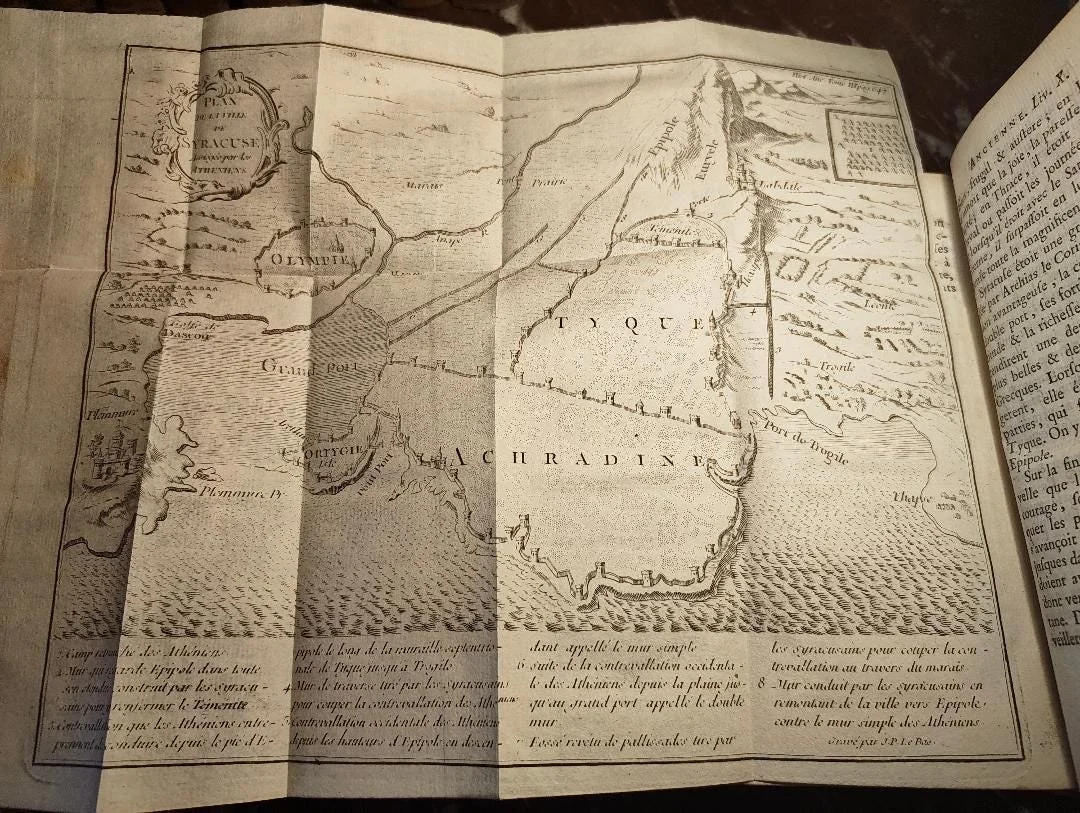 PLAN
DE LA VILLE
DE
SYRACUSE
Assiégée par les
ATHENIENS
Hist. Anc. Tome III pag. 647
ANCIENNE. Liv. X.
Epipole
Euryele
Labdale
Marais
Prairie
Anape R.
Temenite
OLYMPIE
TYQUE
Leonte
Trogile
Golfe de
Dascon
Grand Port
Plemmire
ORTYGIE
Isle
Petit Port
ACHRADINE
Port de Trogile
Plemmire Pr.
Thapse
1 Camp retranché des Athéniens
2 Mur qui garde Epipole dans toute
son etendue construit par les Syracu-
sains pour y renfermer le Temenite
3 Contrevallation que les Athéniens entre-
prennent de conduire depuis le pié d'E-
pipole le long de la muraille septentrio-
nale de Tyque jusqu'à Trogile
4 Mur de traverse tiré par les Syracusains
pour couper la contrevallation des Athéniens
5 Contrevallation occidentale des Athéniens
depuis les hauteurs d'Epipole en descen-
dant appellé le mur simple
6 Suite de la contrevallation occidenta-
le des Athéniens depuis la plaine jus-
qu'au grand port appelle le double
mur
7 Fossé revetu de pallissades tiré par
les Syracusains pour couper la con-
trevallation au travers du marais
8 Mur conduit par les Syracusains en
remontant de la ville vers Epipole
contre le mur simple des Athéniens
Gravé par J.P. Le Bas
frugal & austere; en
que la joie, la paresse
en Thrace, il étoit
ou passoit les journées
lorsqu'il étoit avec le Sa
il surpassoit en lu
toute la magnificen
Syracuse étoit une gr
par Archias le Cori
avantageuse, la c
double port, ses fort
& la richesse
rendirent une des
plus belles & de
Grecques. Lorsq
elle é
parties, qui
Tyque. On y
Epipole.
Sur la fin
velle que l
courage,
quer les p
s'avançoit
jusques da
doient av
donc ve
tane. I
veiller